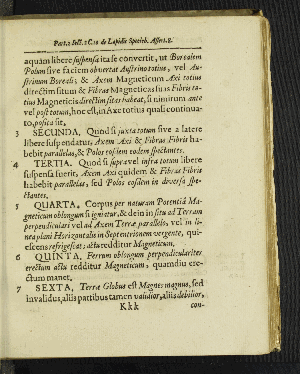 Part. 2. Sect. 1. C. 10 de Lapidis Specieb. Assert. 8.
aquàm libere suspensa ita se convertit, ut Borealem
Polum sive faciem obvertat Austrino totius, vel Au-
strinum Boreali; & Axem Magneticum Axi totius
directim situm & Fibras Magneticas suas Fibris to-
tius Magneticis directim sitas habeat, si nimirum ante
vel post totum, hoc est, in Axe totius quasi continua-
to, posita sit.
3 SECUNDA. Quod si juxta totum sive a latere
libere suspendatur, Axem Axi & Fibras Fibris ha-
bebit parallelas, & Polos eosdem spectantes.
4 TERTIA. Quod si supra vel infra totum libere
suspensa fuerit, Axem Axi quidem & Fibras Fibris
habebit parallelas, sed Polos eosdem in diversa spe-
ctantes.
5 QUARTA. Corpus per naturam Potentiâ Ma-
gneticum oblongum si igniatur, & dein in situ ad Terram
perpendiculari vel ad Axem Terræ parallelo, vel in li-
nea plani Horizontalis in Septentrionem vergente, qui-
escens refrigescat; actu redditur Magneticum.
6 QUINTA. Ferrum oblongum perpendiculariter
erectum actu redditur Magneticum, quamdiu ere-
ctum manet.
7 SEXTA. Terra Globus est Magnes magnus, sed
invalidus, aliis partibus tamen validior, aliis debilior,
Kkk
con-